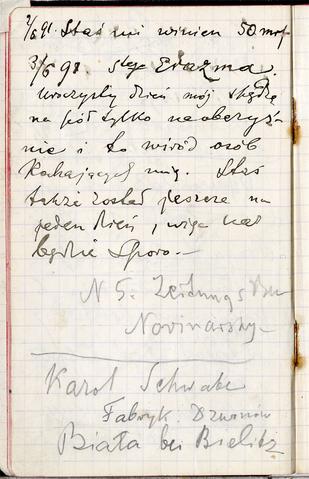 2/6 91. Staś mi winien 50 mrf
3/6 91. Stego Erazma.
Uroczysty dzień mój spędzę
na pół tylko na obczyź-
nie i to wśród osób
Kochających mię. Staś
także został jeszcze na
jeden dzień, więc nas
będzie sporo.—
N 5. Zeitungs
Novinarsky
Karol Schwabe
Fabryk. Dzwonów
Biała bei Bielitz